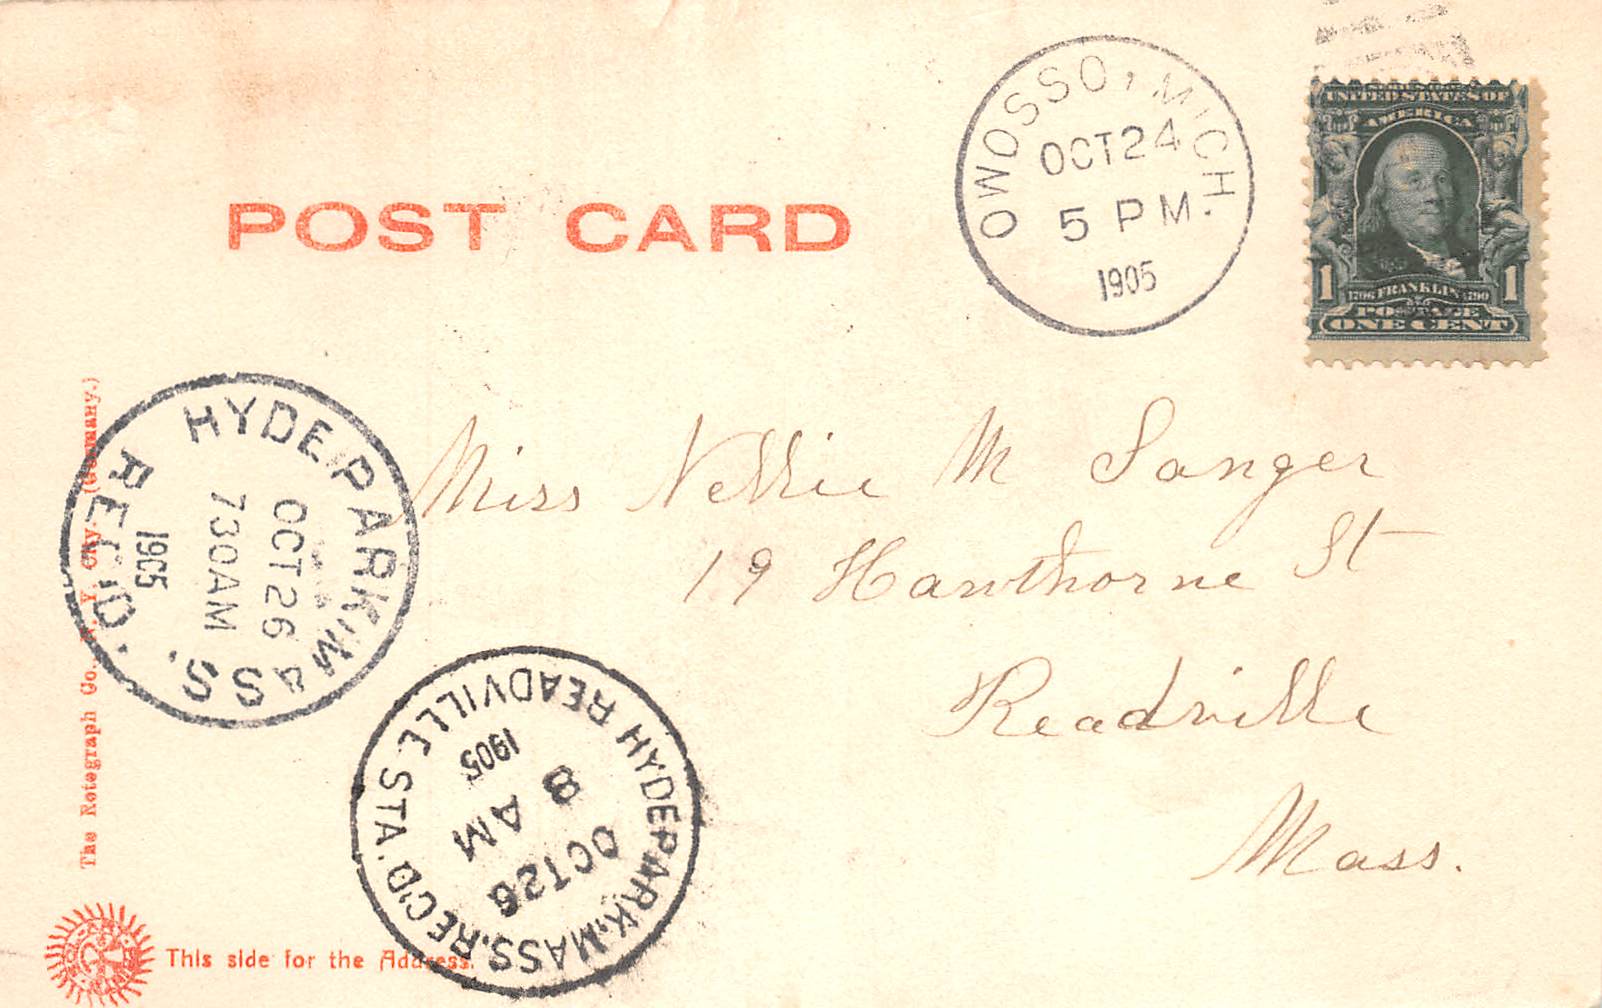 POST CARD
OWOSSO, MICH.
OCT 24
5 PM
1905
UNITED STATES OF
AMERICA
1706 FRANKLIN 1790
1 1
POSTAGE
ONE CENT
Miss Nellie M Sanger
19 Hawthorne St
Readville
Mass.
HYDE PARK, MASS.
OCT 26
730AM
1905
REC'D.
HYDE PARK, MASS. REC'D.
READVILLE STA.
OCT 26
8
AM
1905
The Rotograph Co., N. Y. City. (Germany.)
This side for the Address.